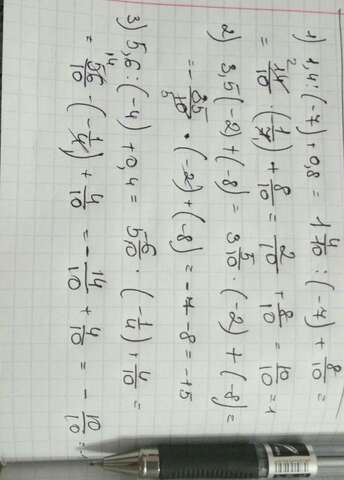 1) 1,4:(-7)+0,8 = 1 4/10 : (-7) + 8/10 =
= 14/10 · (1/7) + 8/10 = 2/10 + 8/10 = 10/10 = 1
2) 3,5(-2)+(-8) = 3 5/10 · (-2) + (-8) =
= - 35/10 · (-2)+(-8) = -7-8 = -15
3) 5,6:(-4)+0,4 = 5 6/10 · (-1/4) + 4/10 =
= 56/10 · (-1/4) + 4/10 = - 14/10 + 4/10 = - 10/10 =